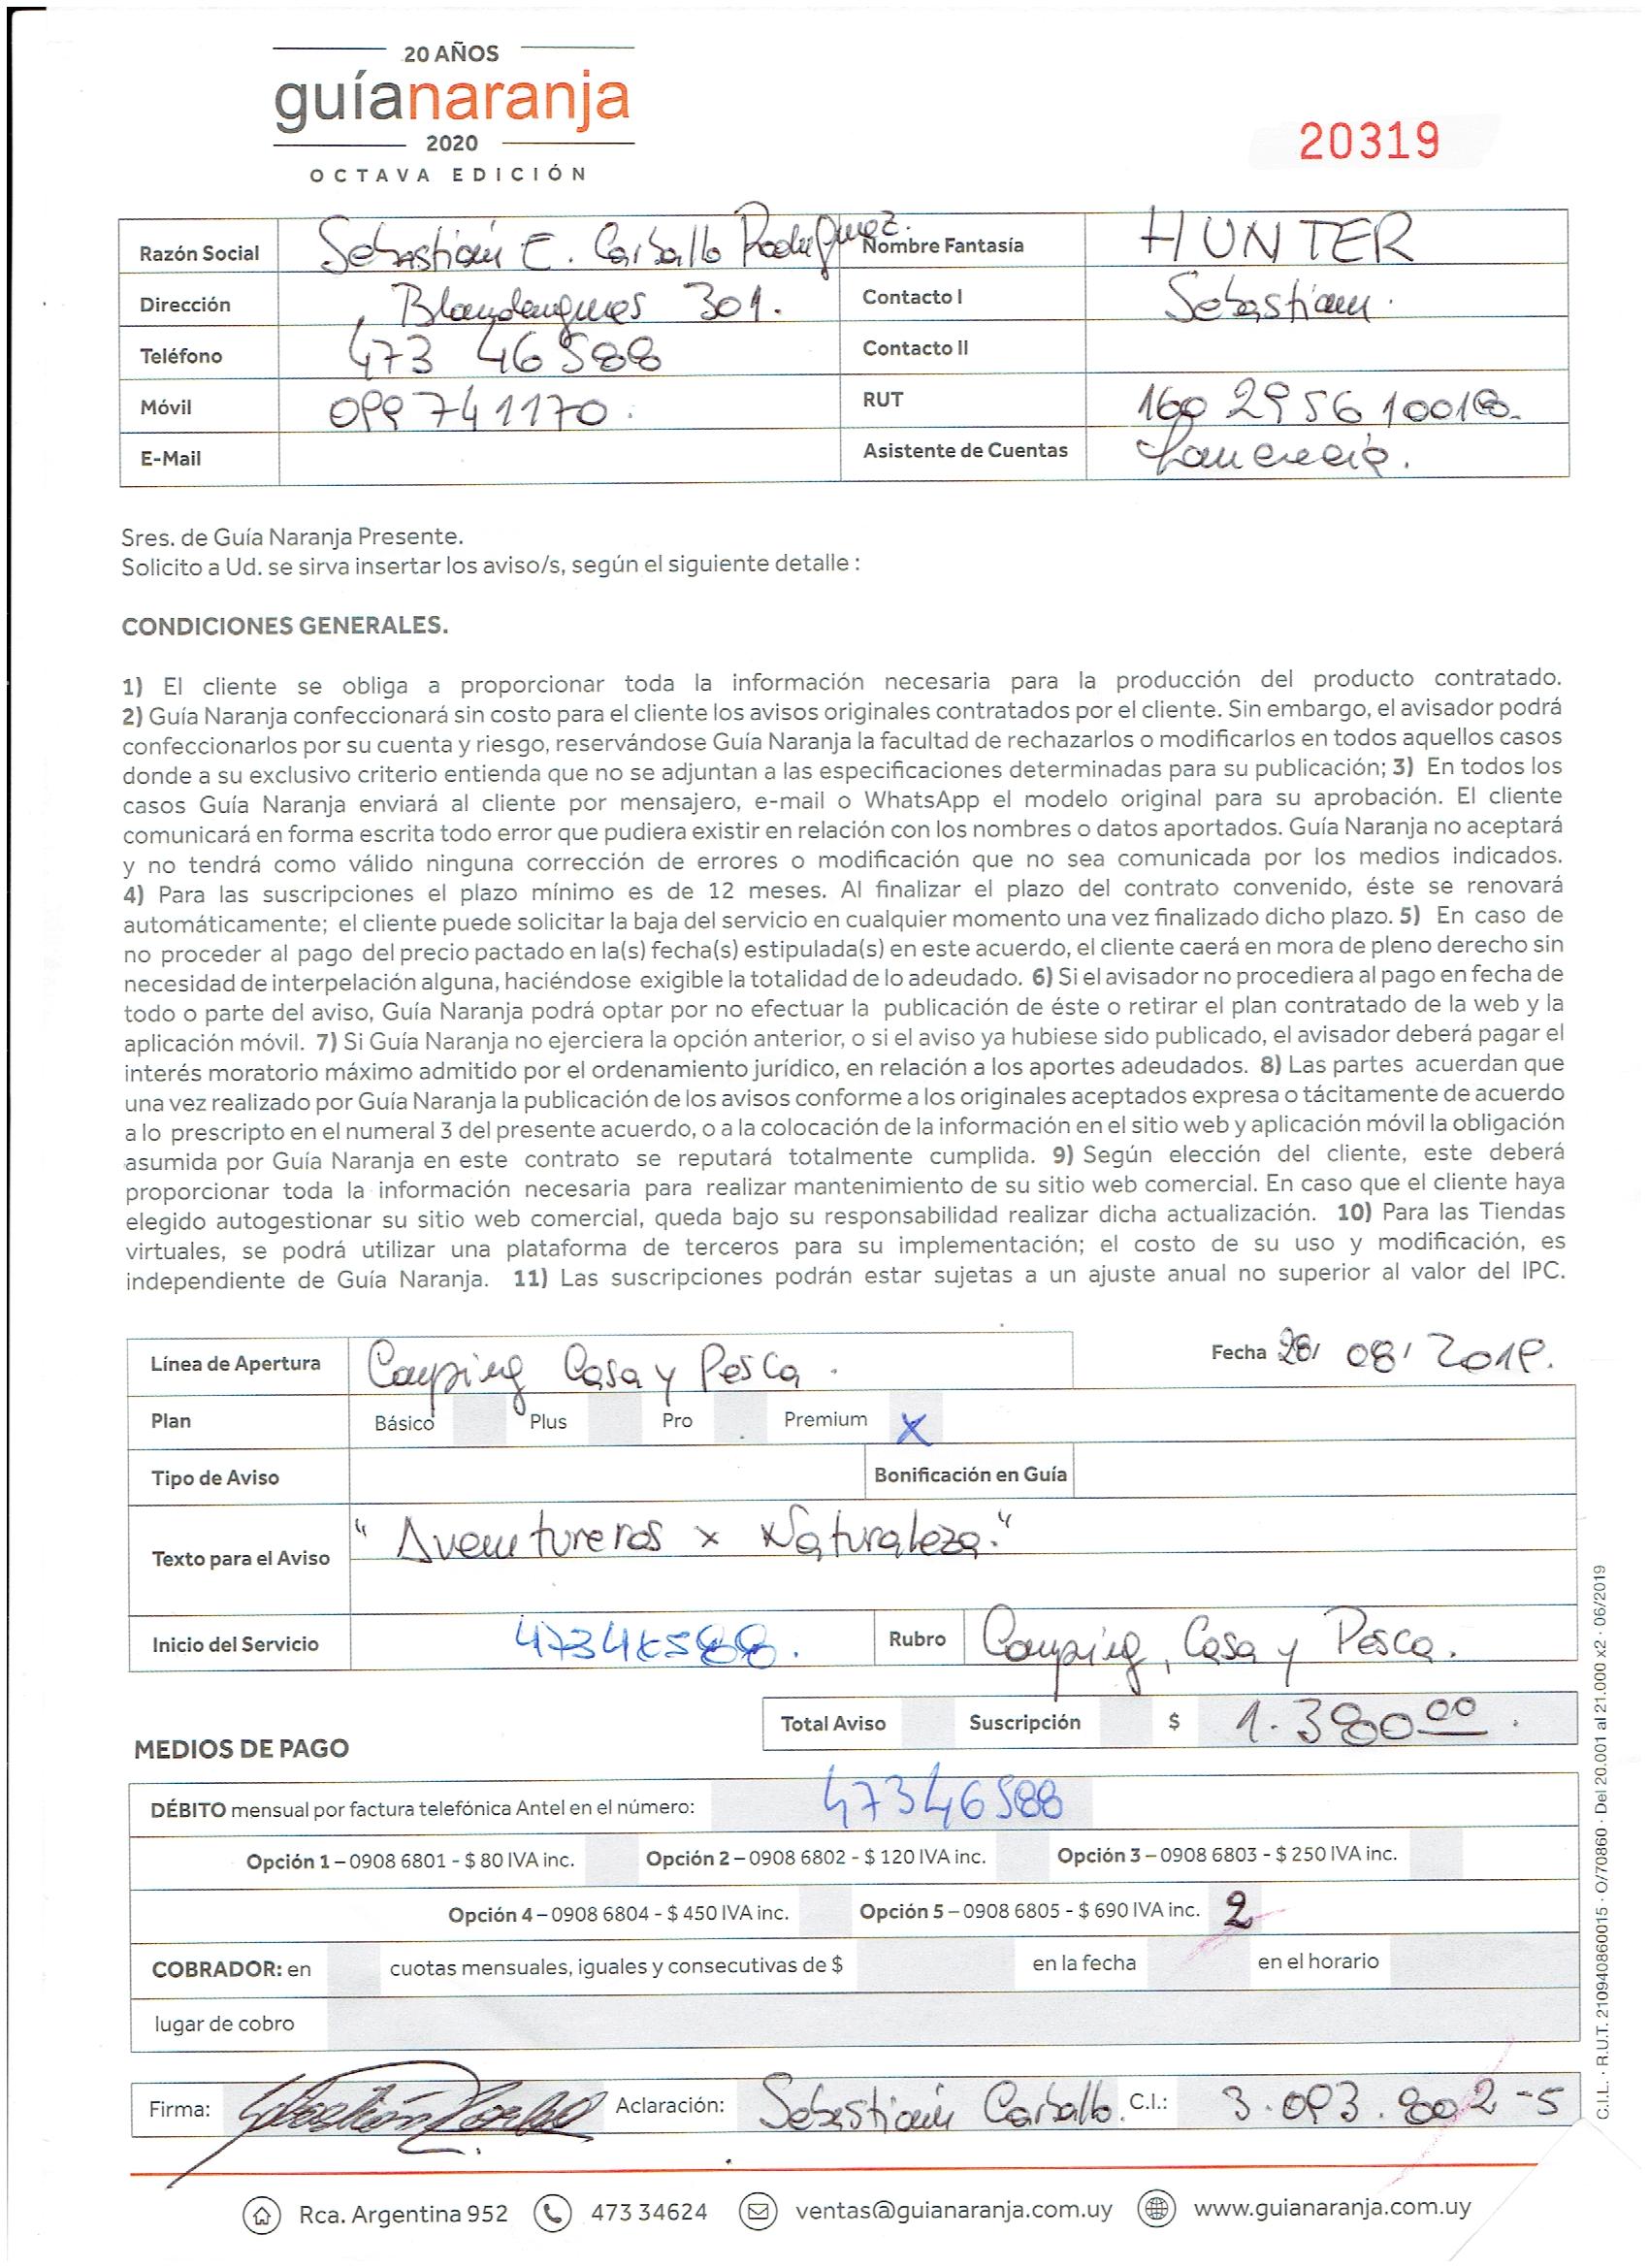 20 AÑOS
guíanaranja
2020
OCTAVA EDICIÓN
20319
Razón Social Sebastián E. Carballo Rodríguez. Nombre Fantasía HUNTER
Dirección Blandengues 301. Contacto I Sebastián.
Teléfono 473 46588 Contacto II
Móvil 099741170. RUT 160295610018.
E-Mail Asistente de Cuentas
Sres. de Guía Naranja Presente.
Solicito a Ud. se sirva insertar los aviso/s, según el siguiente detalle :
CONDICIONES GENERALES.
1) El cliente se obliga a proporcionar toda la información necesaria para la producción del producto contratado.
2) Guía Naranja confeccionará sin costo para el cliente los avisos originales contratados por el cliente. Sin embargo, el avisador podrá
confeccionarlos por su cuenta y riesgo, reservándose Guía Naranja la facultad de rechazarlos o modificarlos en todos aquellos casos
donde a su exclusivo criterio entienda que no se adjuntan a las especificaciones determinadas para su publicación; 3) En todos los
casos Guía Naranja enviará al cliente por mensajero, e-mail o WhatsApp el modelo original para su aprobación. El cliente
comunicará en forma escrita todo error que pudiera existir en relación con los nombres o datos aportados. Guía Naranja no aceptará
y no tendrá como válido ninguna corrección de errores o modificación que no sea comunicada por los medios indicados.
4) Para las suscripciones el plazo mínimo es de 12 meses. Al finalizar el plazo del contrato convenido, éste se renovará
automáticamente; el cliente puede solicitar la baja del servicio en cualquier momento una vez finalizado dicho plazo. 5) En caso de
no proceder al pago del precio pactado en la(s) fecha(s) estipulada(s) en este acuerdo, el cliente caerá en mora de pleno derecho sin
necesidad de interpelación alguna, haciéndose exigible la totalidad de lo adeudado. 6) Si el avisador no procediera al pago en fecha de
todo o parte del aviso, Guía Naranja podrá optar por no efectuar la publicación de éste o retirar el plan contratado de la web y la
aplicación móvil. 7) Si Guía Naranja no ejerciera la opción anterior, o si el aviso ya hubiese sido publicado, el avisador deberá pagar el
interés moratorio máximo admitido por el ordenamiento jurídico, en relación a los aportes adeudados. 8) Las partes acuerdan que
una vez realizado por Guía Naranja la publicación de los avisos conforme a los originales aceptados expresa o tácitamente de acuerdo
a lo prescripto en el numeral 3 del presente acuerdo, o a la colocación de la información en el sitio web y aplicación móvil la obligación
asumida por Guía Naranja en este contrato se reputará totalmente cumplida. 9) Según elección del cliente, este deberá
proporcionar toda la información necesaria para realizar mantenimiento de su sitio web comercial. En caso que el cliente haya
elegido autogestionar su sitio web comercial, queda bajo su responsabilidad realizar dicha actualización. 10) Para las Tiendas
virtuales, se podrá utilizar una plataforma de terceros para su implementación; el costo de su uso y modificación, es
independiente de Guía Naranja. 11) Las suscripciones podrán estar sujetas a un ajuste anual no superior al valor del IPC.
Línea de Apertura Camping Casa y Pesca. Fecha 28/ 08/ 2019.
Plan Básico Plus Pro Premium X
Tipo de Aviso Bonificación en Guía
Texto para el Aviso "Aventureros x Naturaleza."
Inicio del Servicio 47346588. Rubro Camping, Casa y Pesca.
Total Aviso Suscripción $ 1.380 00.
MEDIOS DE PAGO
DÉBITO mensual por factura telefónica Antel en el número: 47346588
Opción 1 – 0908 6801 - $ 80 IVA inc. Opción 2 – 0908 6802 - $ 120 IVA inc. Opción 3 – 0908 6803 - $ 250 IVA inc.
Opción 4 – 0908 6804 - $ 450 IVA inc. Opción 5 – 0908 6805 - $ 690 IVA inc. 2
COBRADOR: en cuotas mensuales, iguales y consecutivas de $ en la fecha en el horario
lugar de cobro
Firma: Sebastián Carballo Aclaración: Sebastián Carballo. C.I.: 3.093.802-5
Rca. Argentina 952 473 34624 ventas@guianaranja.com.uy www.guianaranja.com.uy
C.I.L. · R.U.T. 210940860015 · O/70860 · Del 20.001 al 21.000 x2 · 06/2019